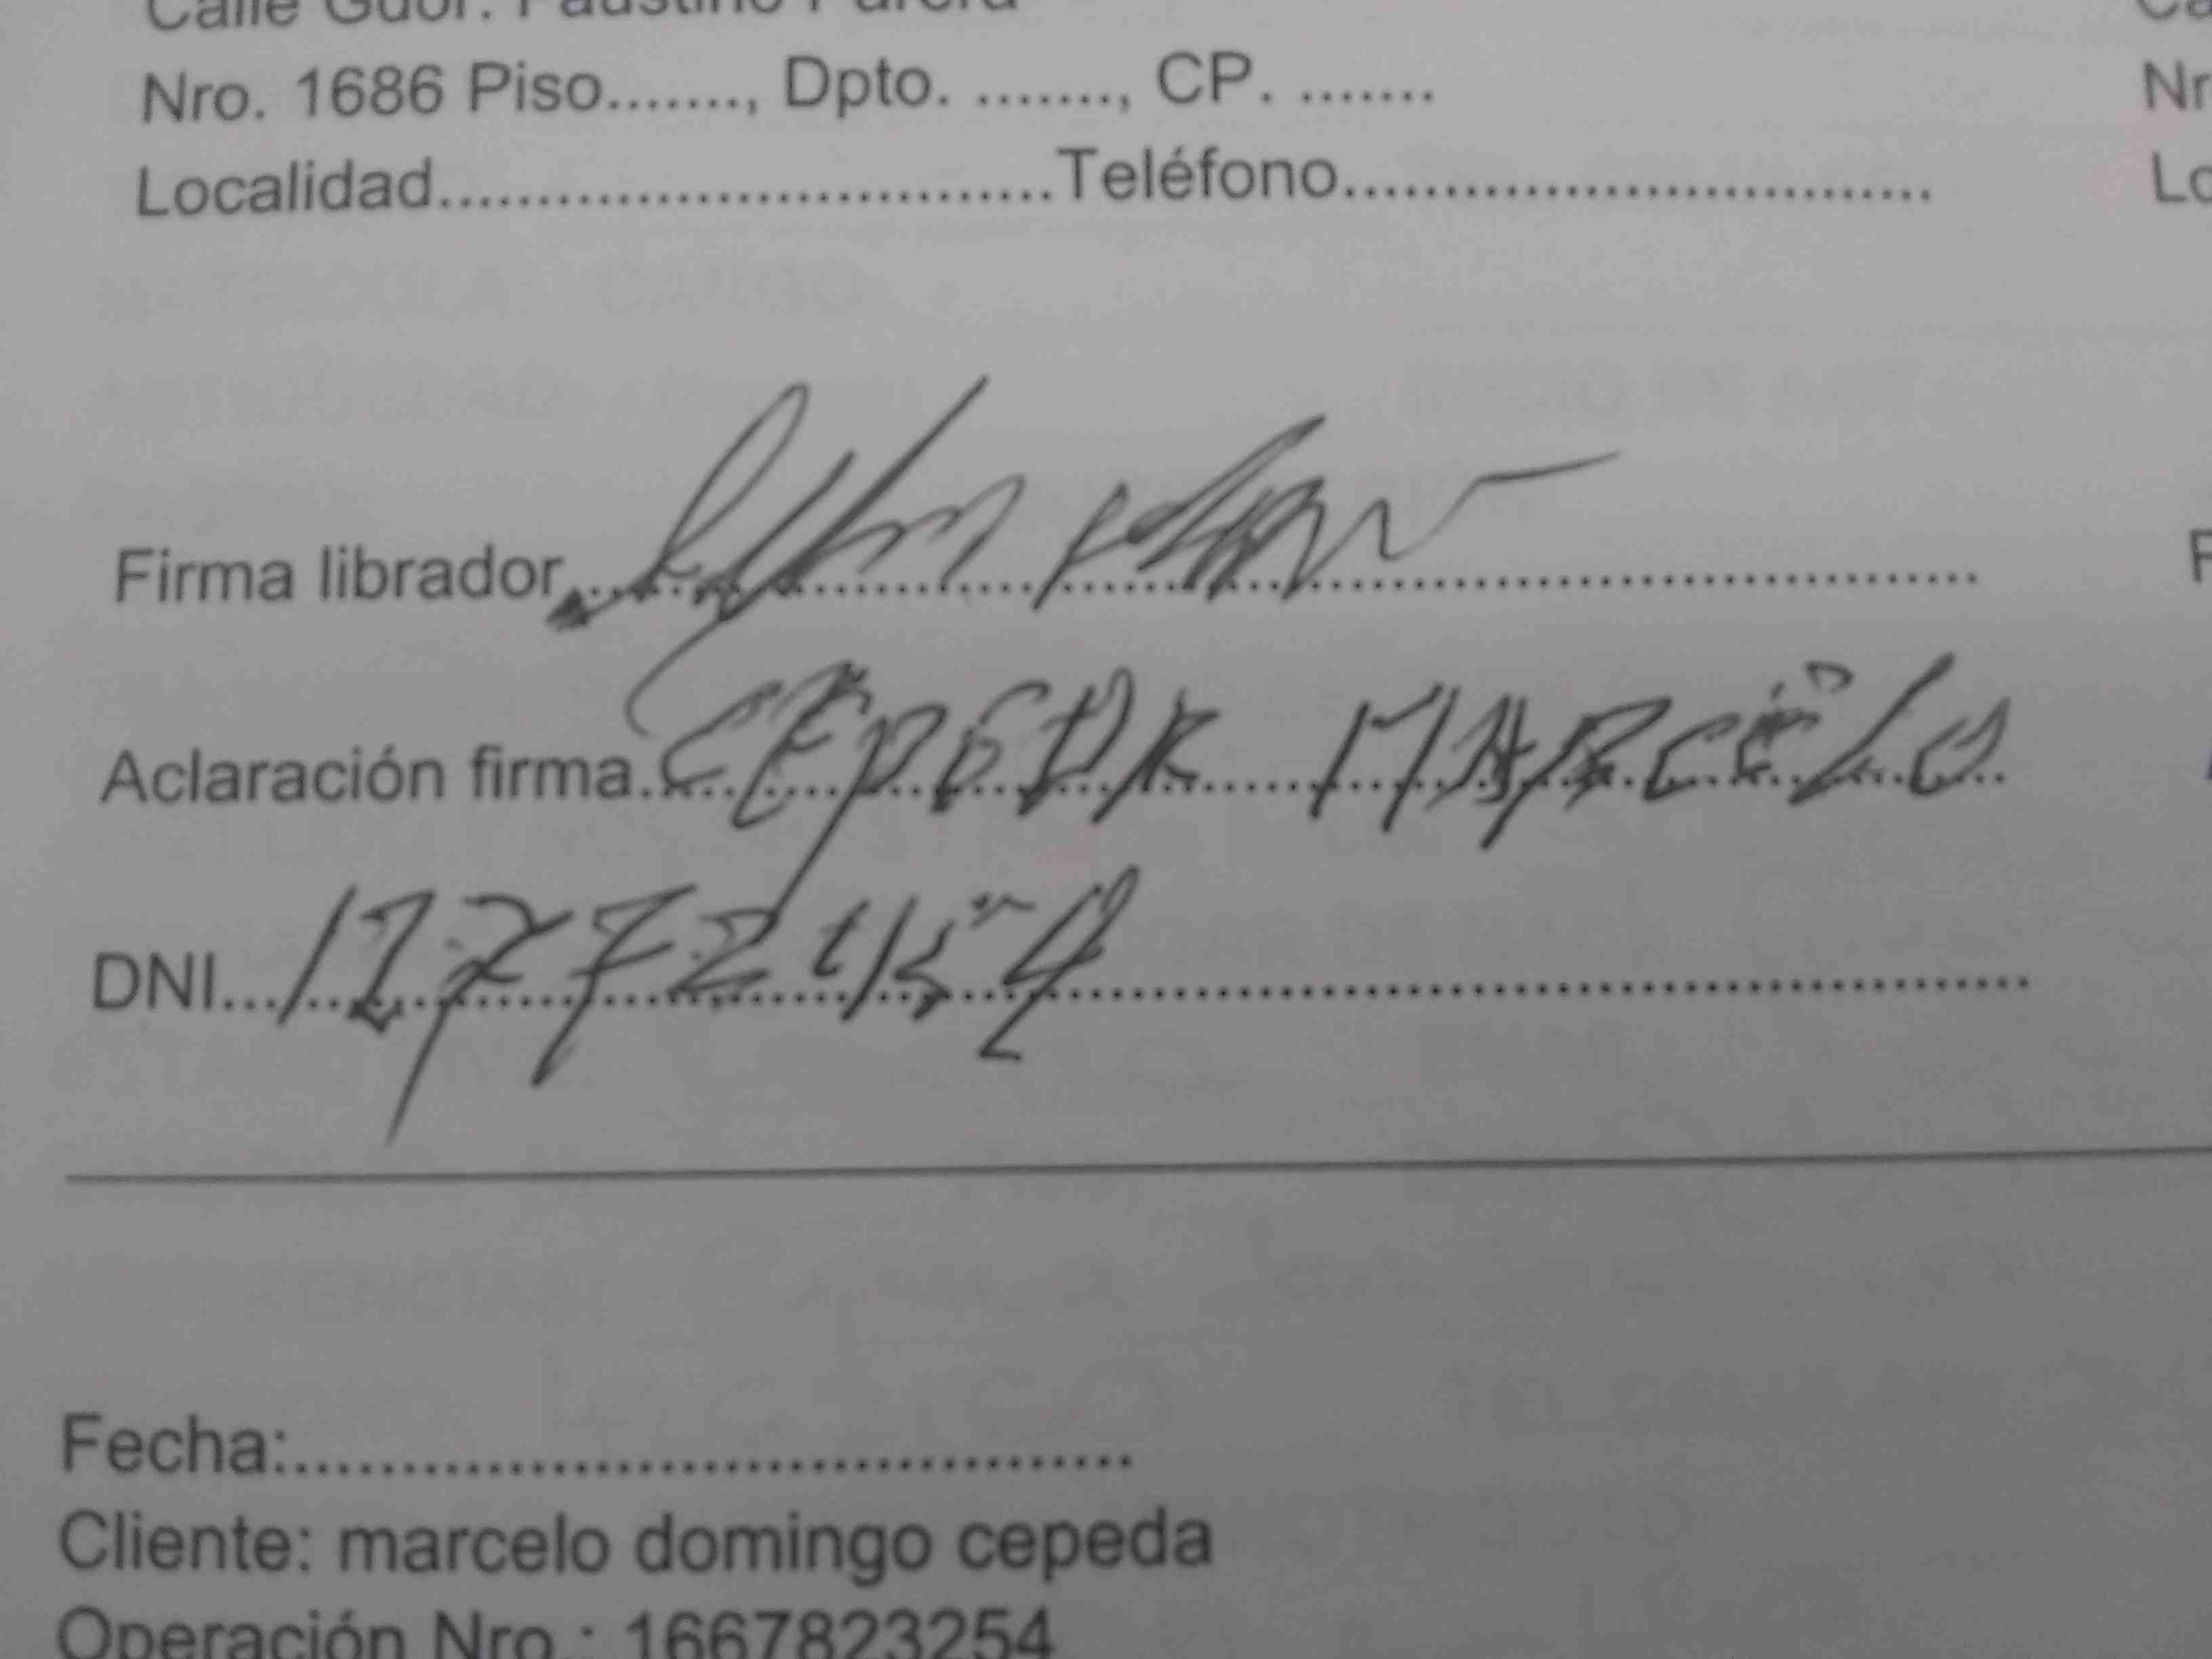 Calle Gdor. Faustino Parera
Nro. 1686 Piso......., Dpto. ......., CP. .......
Localidad..............................Teléfono.............................
Firma librador
Aclaración firma. CEPEDA MARCELO
DNI...
Fecha:..........................................
Cliente: marcelo domingo cepeda
Operación Nro.: 1667823254
Nr